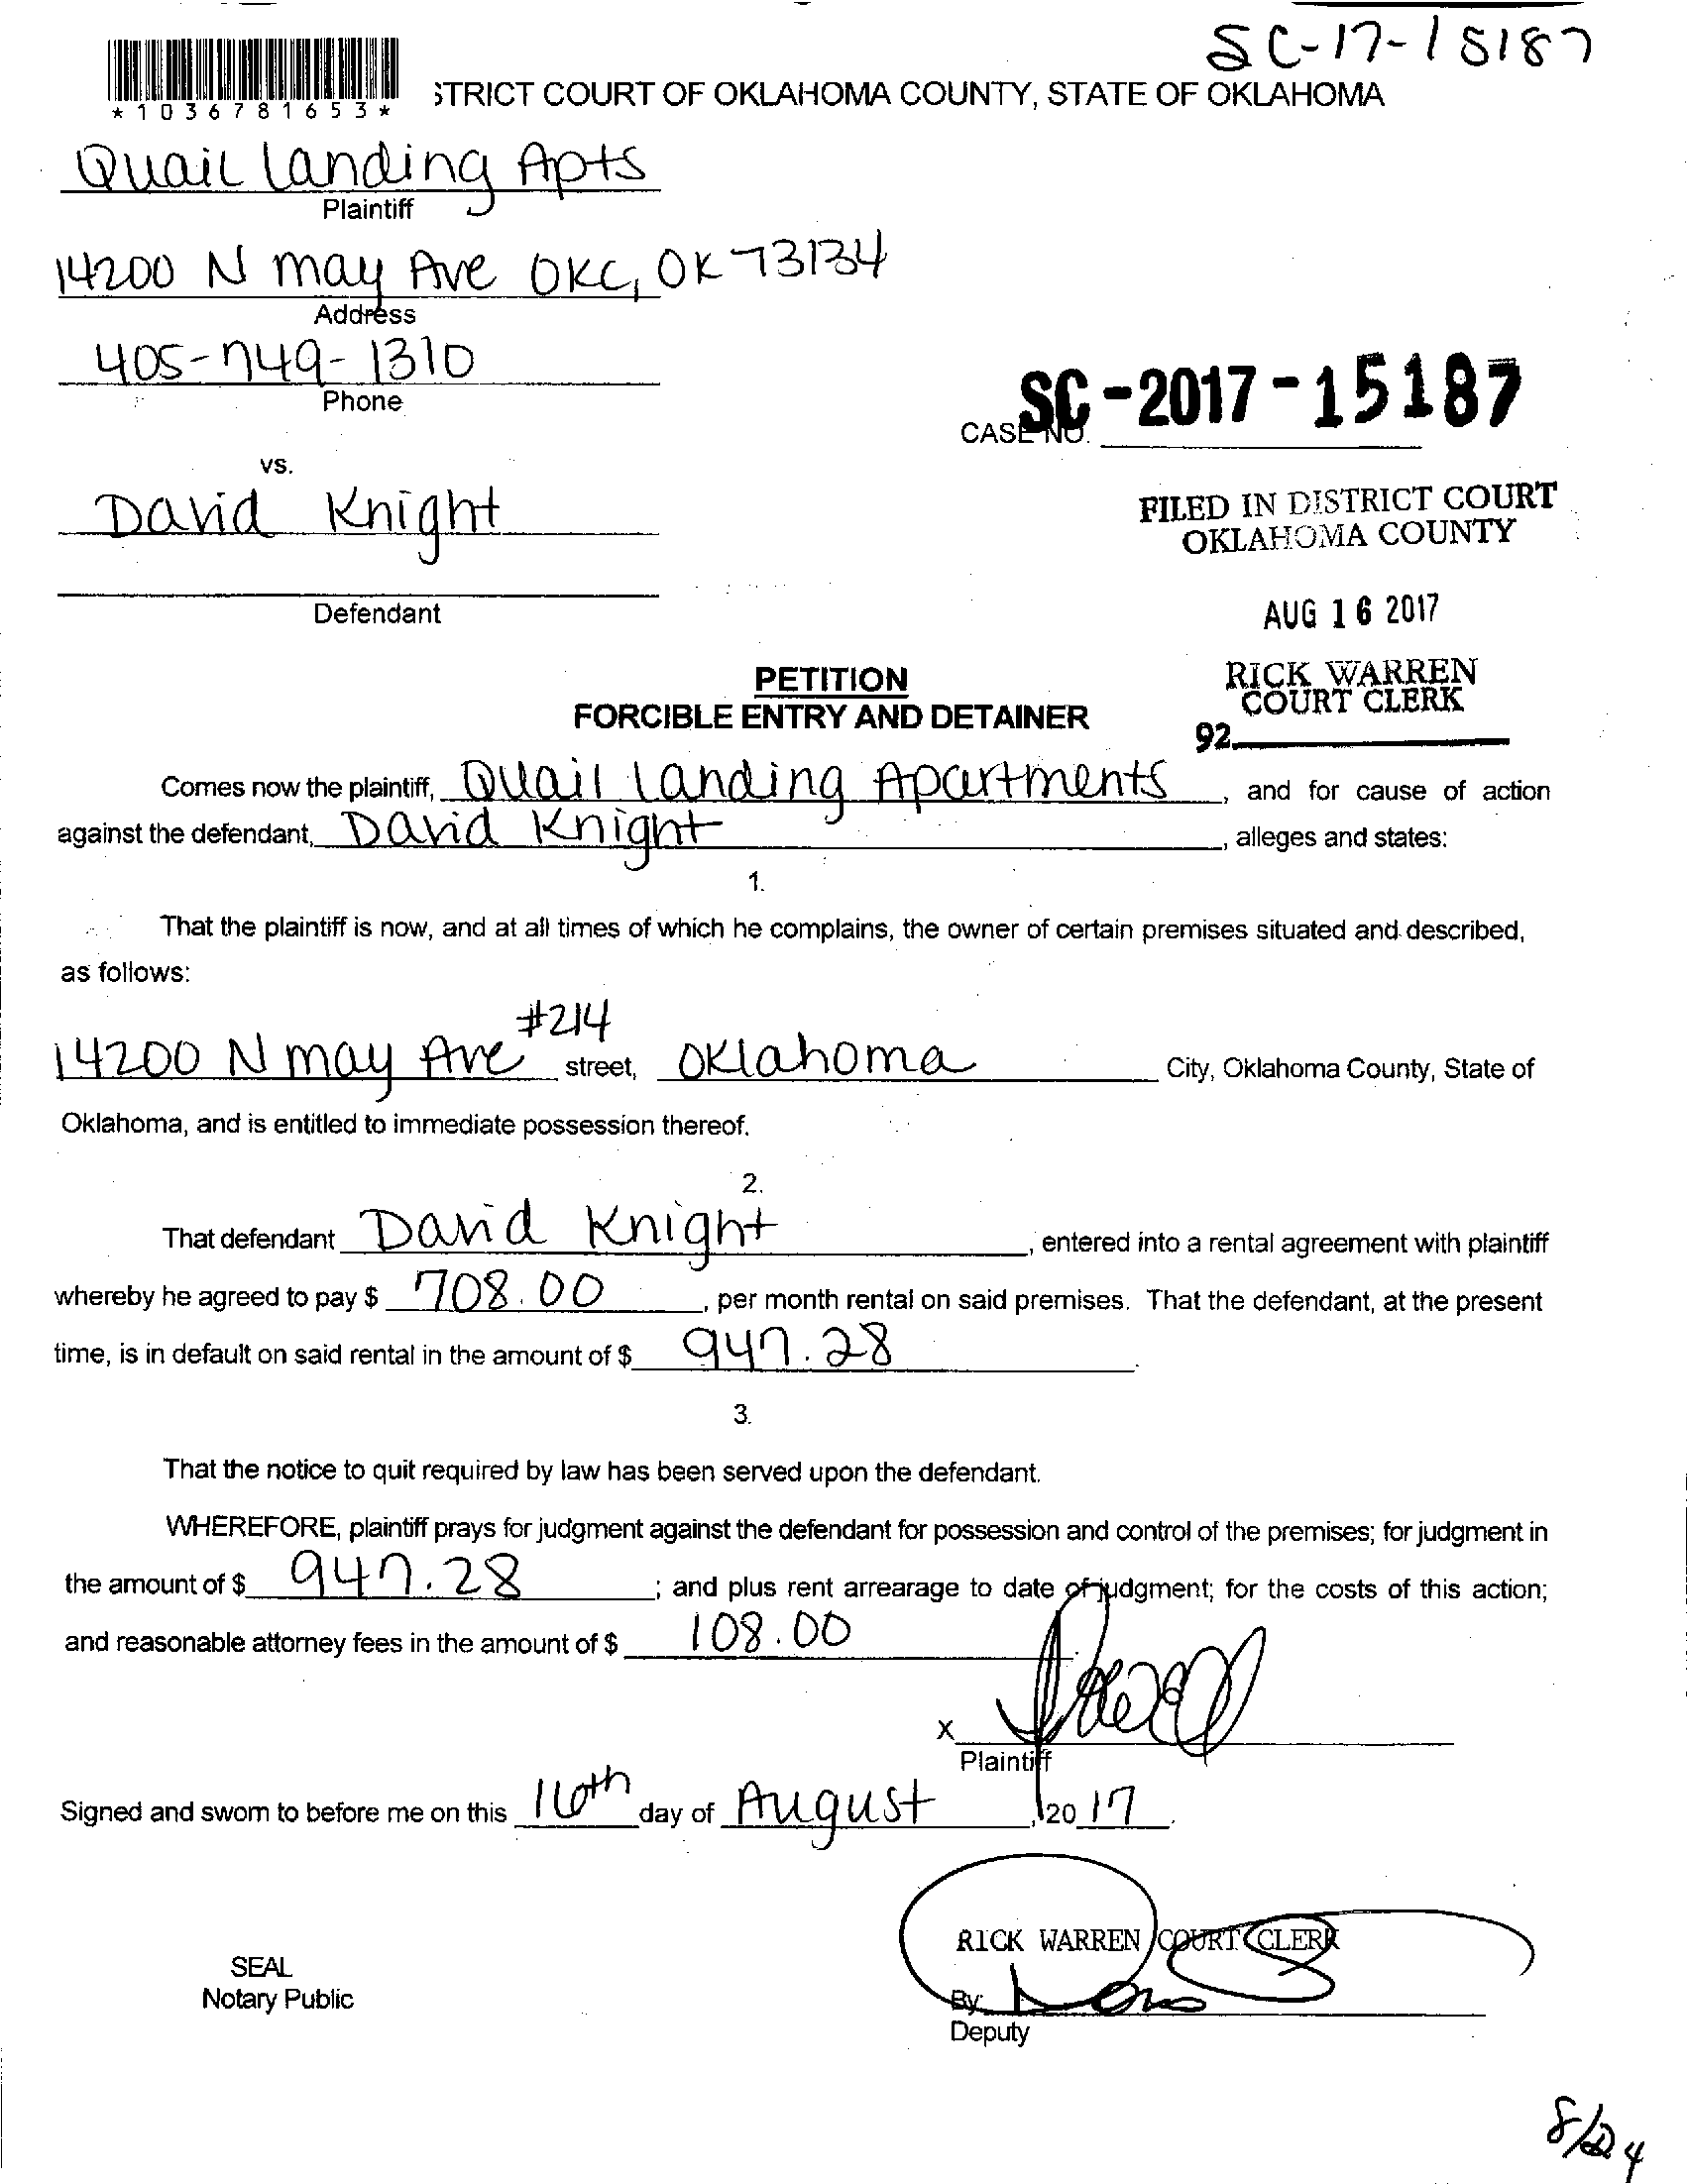 SC-17-15187
*1036781653*
STRICT COURT OF OKLAHOMA COUNTY, STATE OF OKLAHOMA
Quail Landing Apts
Plaintiff
14200 N May Ave OKC, OK 73134
Address
405-749-1310
Phone
CASE NO. SC-2017-15187
vs.
David Knight
FILED IN DISTRICT COURT
OKLAHOMA COUNTY
Defendant
AUG 16 2017
PETITION
FORCIBLE ENTRY AND DETAINER
RICK WARREN
COURT CLERK
92
Comes now the plaintiff, Quail Landing Apartments, and for cause of action
against the defendant, David Knight, alleges and states:
1.
That the plaintiff is now, and at all times of which he complains, the owner of certain premises situated and described,
as follows:
#214
14200 N May Ave street, Oklahoma City, Oklahoma County, State of
Oklahoma, and is entitled to immediate possession thereof.
2.
That defendant David Knight, entered into a rental agreement with plaintiff
whereby he agreed to pay $ 708.00, per month rental on said premises. That the defendant, at the present
time, is in default on said rental in the amount of $ 947.28.
3.
That the notice to quit required by law has been served upon the defendant.
WHEREFORE, plaintiff prays for judgment against the defendant for possession and control of the premises; for judgment in
the amount of $ 947.28; and plus rent arrearage to date of judgment; for the costs of this action;
and reasonable attorney fees in the amount of $ 108.00
X
Plaintiff
Signed and sworn to before me on this 16th day of August, 2017.
RICK WARREN COURT CLERK
SEAL
Notary Public
By:
Deputy
8/24